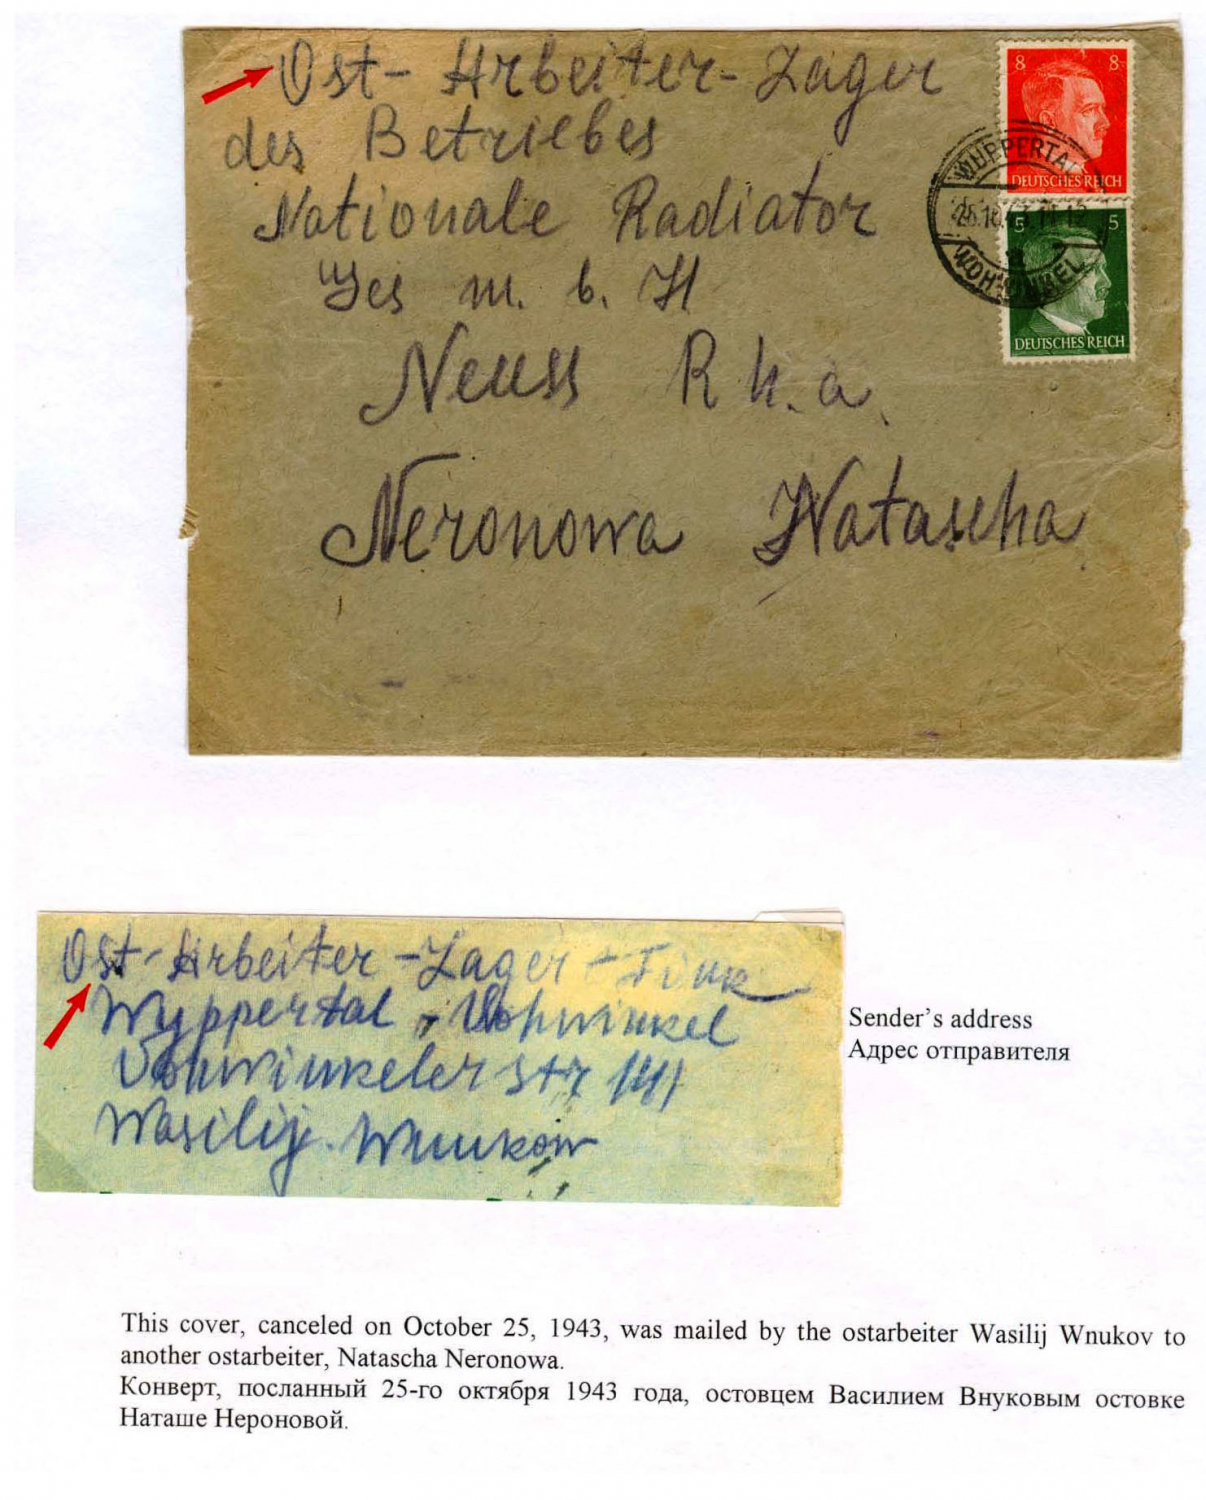 Ost-Arbeiter-Lager
des Betriebes
Nationale Radiator
Ges m. b. H
Neuss Rh. a.
Neronowa Natascha
8 8
DEUTSCHES REICH
5 5
DEUTSCHES REICH
WUPPERTAL
25.10.43. 11-12
Ost-Arbeiter-Lager + Fink
Wyppertal - Vohwinkel
Vohwinkeler Str 141
Wasilij. Wnukow
Sender's address
Адрес отправителя
This cover, canceled on October 25, 1943, was mailed by the ostarbeiter Wasilij Wnukov to
another ostarbeiter, Natascha Neronowa.
Конверт, посланный 25-го октября 1943 года, остовцем Василием Внуковым остовке
Наташе Нероновой.